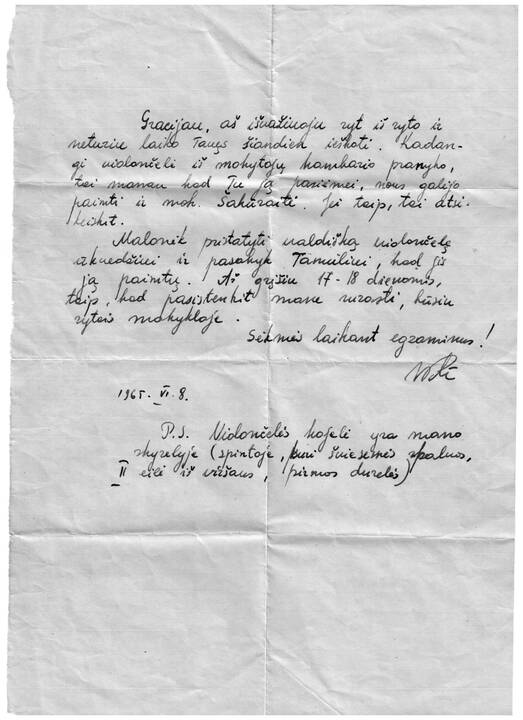 Gracijau, aš išvažiuoju ryt iš ryto ir
neturiu laiko Tavęs šiandien ieškoti. Kadan-
gi violončeli iš mokytojų kambario pranyko,
tai manau kad Tu ją pasiėmei, nors galėjo
paimti ir mok. Šakūraitė. Jei taip, tai atsi-
kviesk it.
Malonėk pristatyti valdišką violončelę
ir pasakyk Tamuliui, kad jis
ją paimtų. Aš grįšiu 17-18 dienomis,
taip, kad pasistenkit mane surasti, būsiu
rytais mokykloje.
Sėkmės laikant egzaminus!
1965. VI. 8.
P.S. Violončelės kojelė yra mano
skyrelyje (spintoje, kuri šviesesnės spalvos,
II eilė iš viršaus, pirmos durelės)